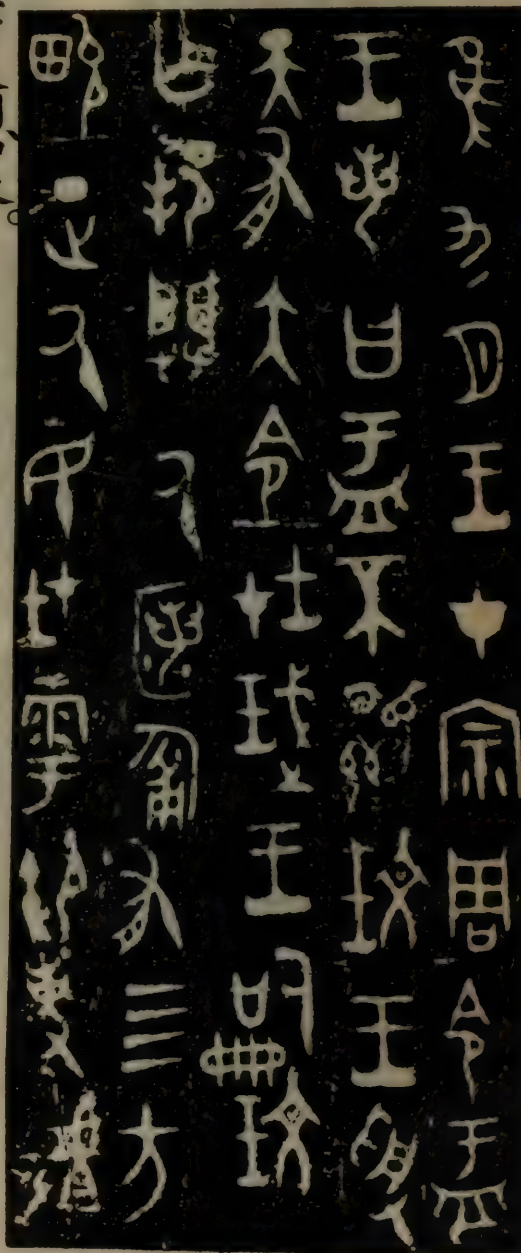 隹九月王才宗周令盂
王若曰盂不顯玟王受
天有大令在珷王嗣玟
乍邦闢氒匿匍有亖方
畯正氒民在雩御事𠭯